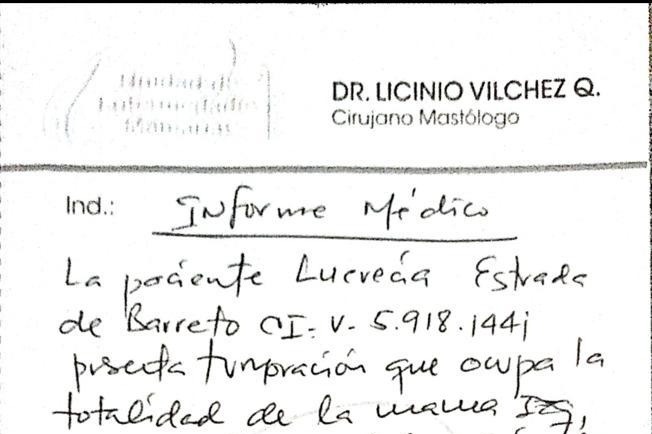 Unidad de
DR. LICINIO VILCHEZ Q.
Cirujano Mastólogo
Ind.: INforme Médico
La paciente Lucrecia Estrada
de Barreto CI: V- 5.918.144;
presenta tumoración que ocupa la
totalidad de la mama Izq,